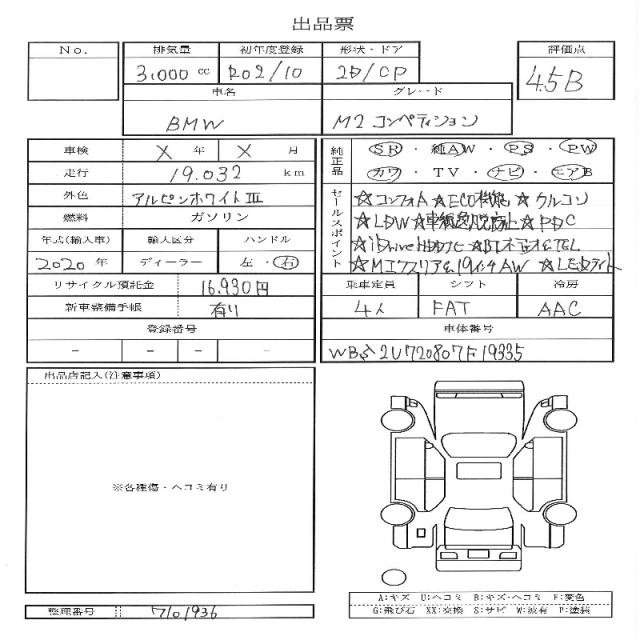 出品票
No. 排気量 初年度登録 形状・ドア 評価点
3,000 cc R02/10 2D/CP 4.5B
車名 グレード
BMW M2 コンペティション
車検 X 年 X 月
走行 19,032 km
外色 アルピンホワイトⅢ
燃料 ガソリン
年式(輸入車) 輸入区分 ハンドル
2020 年 ディーラー 左・右
リサイクル預託金 16,930円
新車整備手帳 有り
登録番号
- - - -
純正品 SR・純AW・PS・PW
カワ・TV・ナビ・エアB
セールスポイント ☆コンフォA ☆ECO機能 ☆クルコン
☆LDW ☆車線逸脱防止 ☆PDC
☆iDrive HDDナビ ☆BTオーディオ&TEL
☆Mエクステリア&19インチAW ☆LEDライト
乗車定員 シフト 冷房
4人 FAT AAC
車体番号
WBS2U720807F19335
出品店記入(注意事項)
※各種傷・ヘコミ有り
A:キズ U:ヘコミ B:キズ・ヘコミ F:変色
G:飛び石 XX:交換 S:サビ W:波有 P:塗装
整理番号 7101936